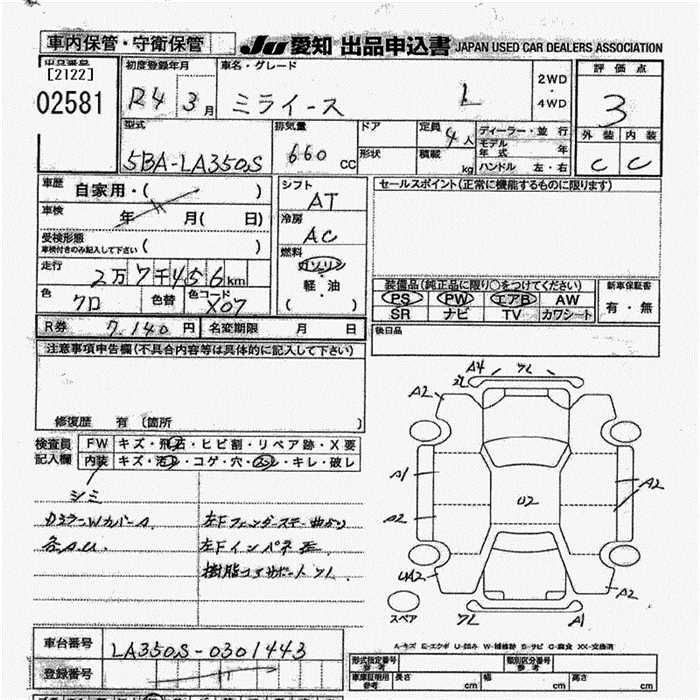 車内保管・守衛保管 JU 愛知 出品申込書 JAPAN USED CAR DEALERS ASSOCIATION
出品番号 初度登録年月 車名・グレード 2WD・4WD 評価点
[2122]
02581 R4 3月 ミライース L 3
型式 排気量 ドア 定員 4人 ディーラー・並行 外装 内装
モデル年式 年
5BA-LA350S 660 CC 形状 積載 kg ハンドル 左・右 C C
車歴 自家用・( ) シフト AT セールスポイント(正常に機能するものに限ります)
車検 年 月( 日) 冷房 AC
受検形態 ( )
車検付きのみ記入して下さい
燃料 ガソリン
走行 2万7千456km 軽・油
装備品(純正品に限り○をつけてください) 新車保証書
色 クロ 色替 色コード X07 ( )
PS PW エアB AW 有・無
SR ナビ TV カワシート
R券 7,140円 名変期限 月 日
後日品
注意事項申告欄(不具合内容等は具体的に記入して下さい)
修復歴 有 〔箇所 〕
検査員記入欄 FW キズ・飛石・ヒビ割・リペア跡・X要
内装 キズ・汚れ・コゲ・穴・スレ・キレ・破レ
シミ
カバーA 左Fフェンダーステー曲がり
各A.U. 左Fインパネ
樹脂コアサポートワレ
A4 ワレ
A2 A2
A1 A2
A2 U2
UA2 A2
スペア ワレ A1
車台番号 LA350S-0301443
A-キズ E-エクボ U-凹み W-補修跡 S-サビ C-腐食 XX-交換済
登録番号
形式指定番号 参考 類別区分番号 参考
車庫証明用 参考 長さ cm 幅 cm 高さ cm